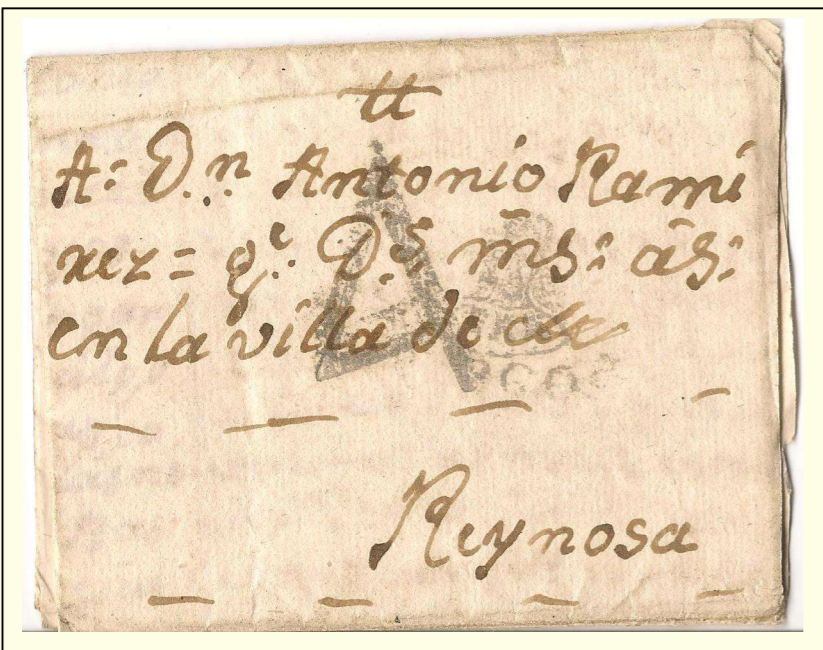 tt
A: D.n Antonio Rami
rez = g.e D.s ms: as:
en la villa de
Reynosa